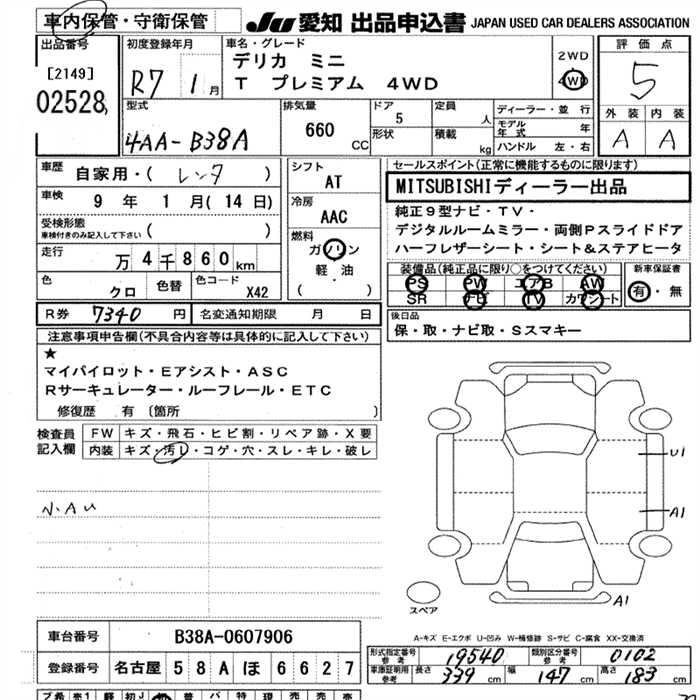 車内保管・守衛保管
JU 愛知 出品申込書 JAPAN USED CAR DEALERS ASSOCIATION
出品番号
[2149]
02528
初度登録年月
R7 1 月
車名・グレード
デリカ ミニ
T プレミアム 4WD
2WD
4WD
評価点
5
外装 内装
A A
型式
4AA-B38A
排気量
660 CC
ドア
5
形状
定員
人
積載
kg
ディーラー・並行
モデル年式 年
ハンドル 左・右
車歴
自家用・( レンタ )
車検
9 年 1 月 (14 日)
受検形態
車検付きのみ記入して下さい ( )
走行
万 4 千 8 6 0 km
色
クロ
色替
色コード
X42
シフト
AT
冷房
AAC
燃料
ガソリン
軽・油
( )
セールスポイント(正常に機能するものに限ります)
MITSUBISHIディーラー出品
純正9型ナビ・TV・
デジタルルームミラー・両側Pスライドドア
ハーフレザーシート・シート&ステアヒータ
装備品(純正品に限り○をつけてください)
PS PW エアB AW
SR ナビ TV カワシート
新車保証書
有・無
R券 7340 円
名変通知期限 月 日
後日品
保・取・ナビ取・Sスマキー
注意事項申告欄(不具合内容等は具体的に記入して下さい)
★
マイパイロット・Eアシスト・ASC
Rサーキュレーター・ルーフレール・ETC
修復歴 有 〔箇所 〕
検査員記入欄
FW キズ・飛石・ヒビ割・リペア跡・X要
内装 キズ・汚レ・コゲ・穴・スレ・キレ・破レ
小AU
U1
A1
A1
スペア
A-キズ E-エクボ U-凹み W-補修跡 S-サビ C-腐食 XX-交換済
車台番号 B38A-0607906
登録番号 名古屋 5 8 A ほ 6 6 2 7
形式指定番号
参考
19540
類別区分番号
参考
0102
車庫証明用
参考
長さ 339 cm 幅 147 cm 高さ 183 cm